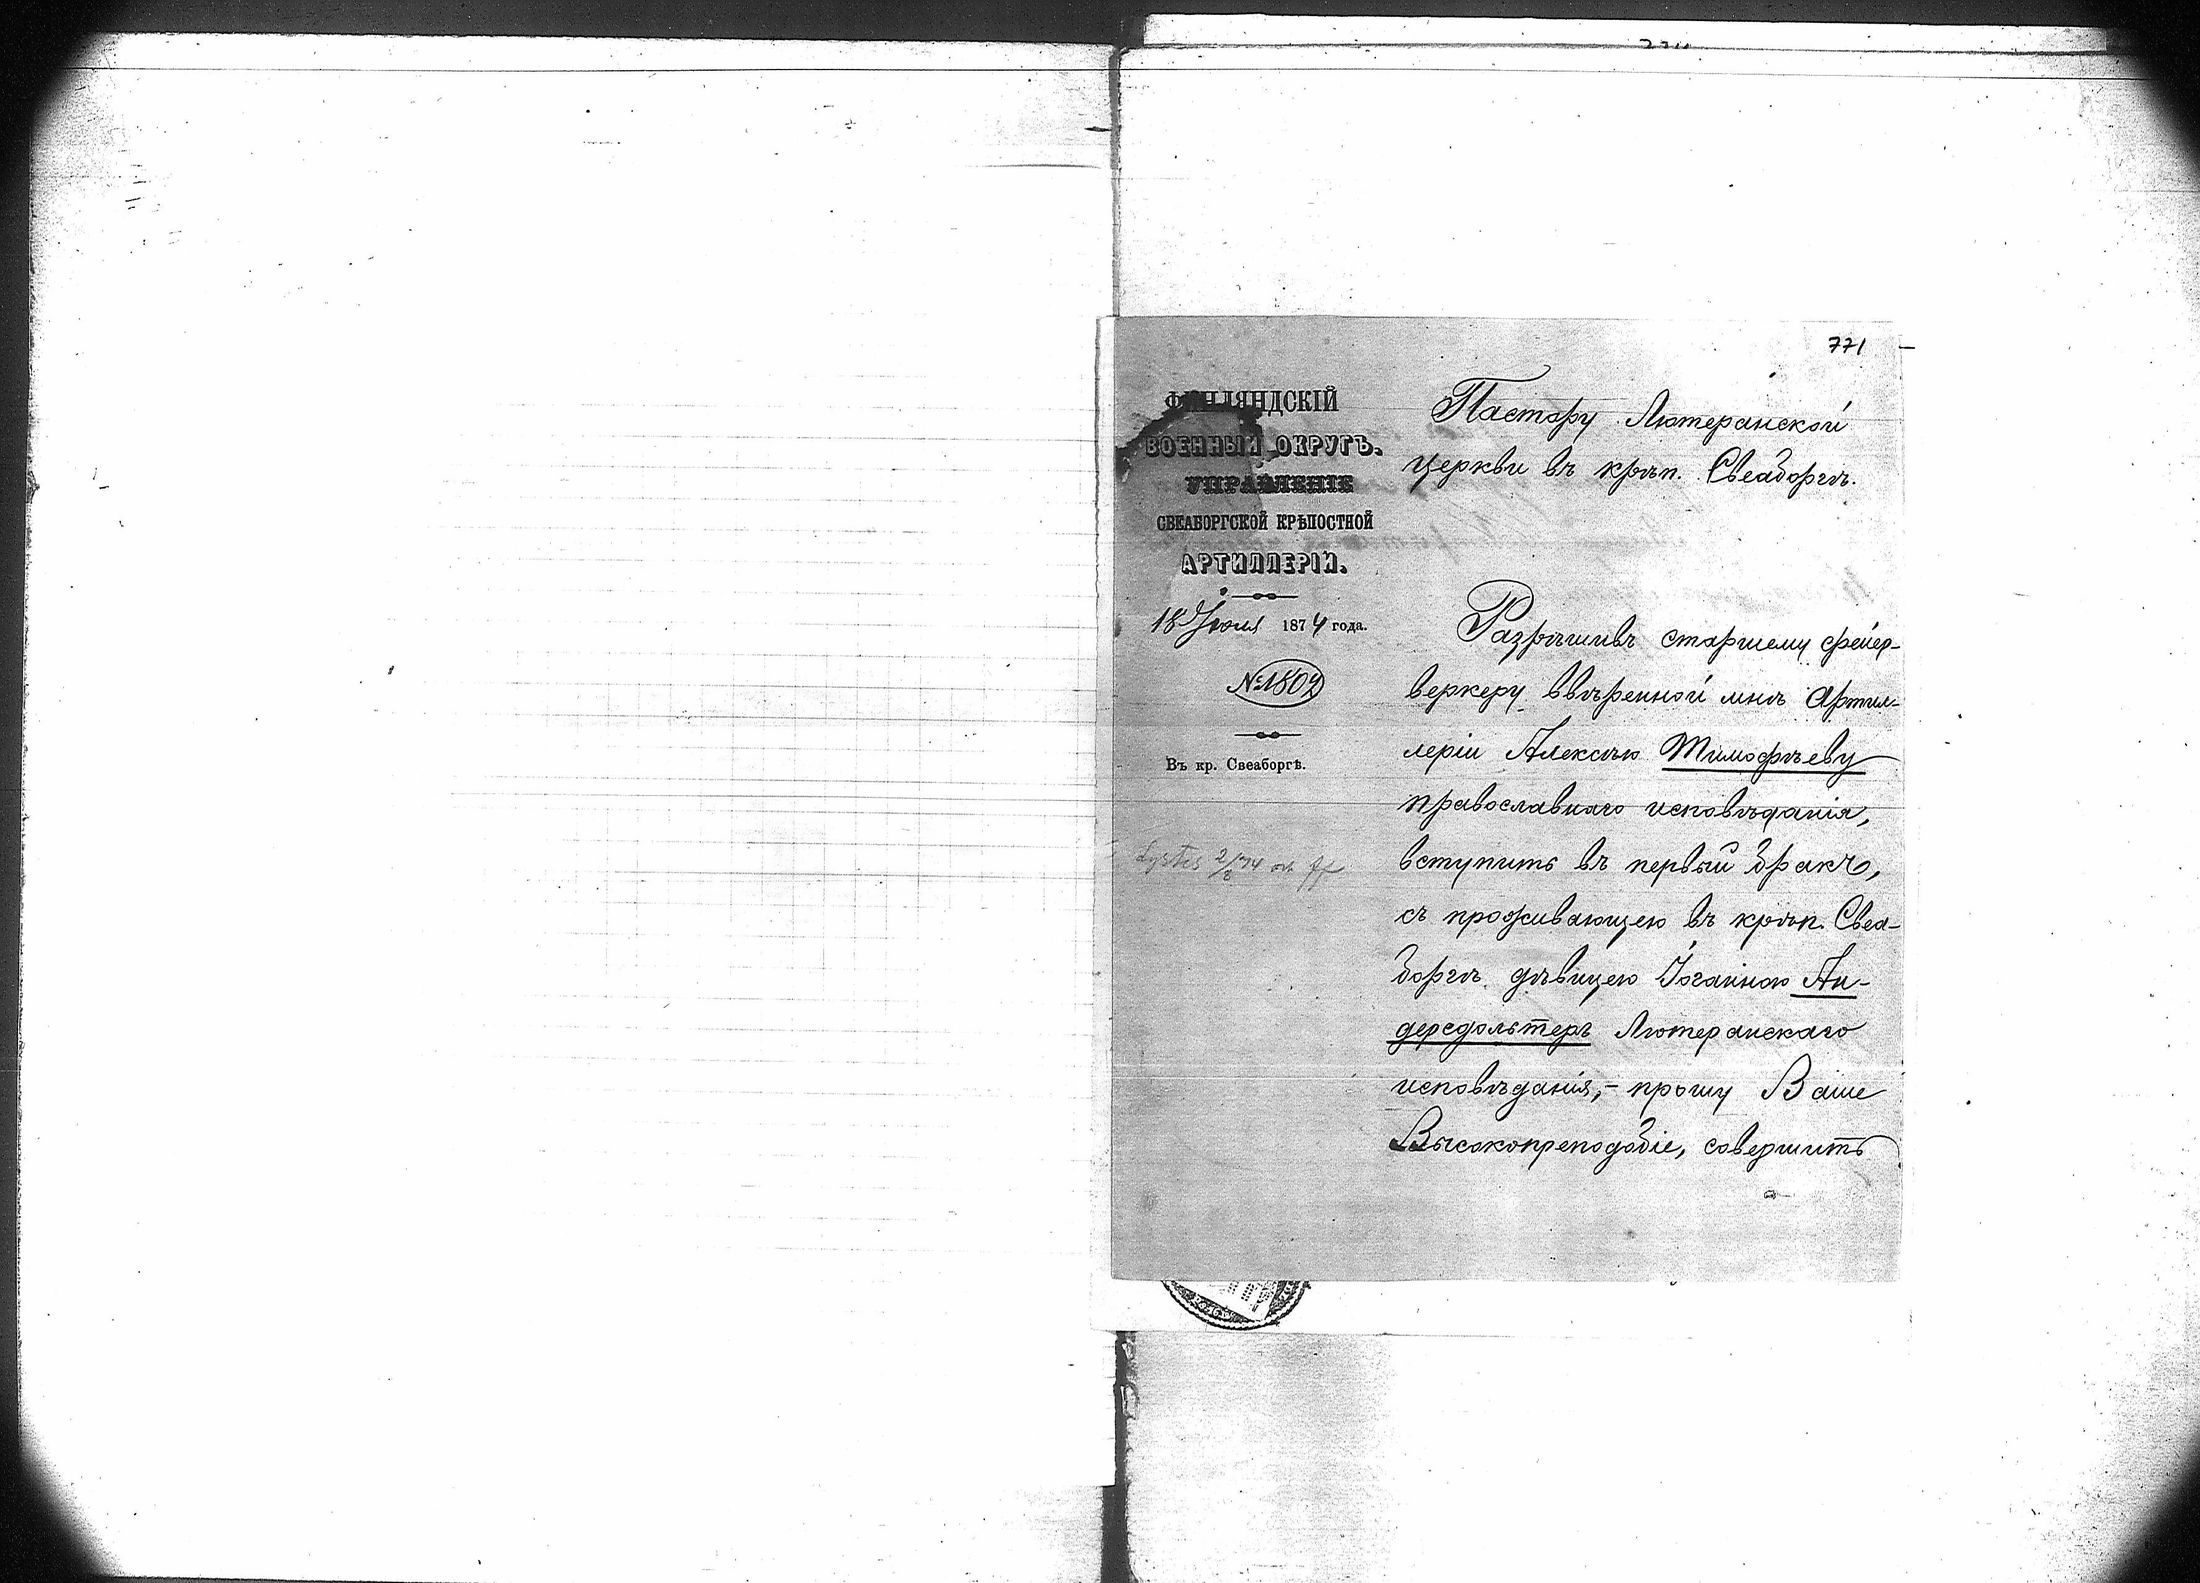 771
ФИНЛЯНДСКІЙ
ВОЕННЫЙ ОКРУГЪ.
УПРАВЛЕНІЕ
СВЕАБОРГСКОЙ КРѢПОСТНОЙ
АРТИЛЛЕРІИ.
18 Іюля 1874 года.
№ 1802
Въ кр. Свеаборгѣ.
Lystes 2/8 74
Пастору Лютеранской
церкви въ крѣп. Свеаборгѣ.
Разрѣшивъ старшему фейер-
веркеру ввѣренной мнѣ Артил-
леріи Алексѣю Тимофѣеву
православнаго исповѣданія,
вступить въ первый бракъ,
съ проживающею въ крѣп. Свеа-
боргѣ дѣвицею Іоганною Ан-
дерсдольтеръ Лютеранскаго
исповѣданія,- прошу Ваше
Высокопреподобіе, совершить